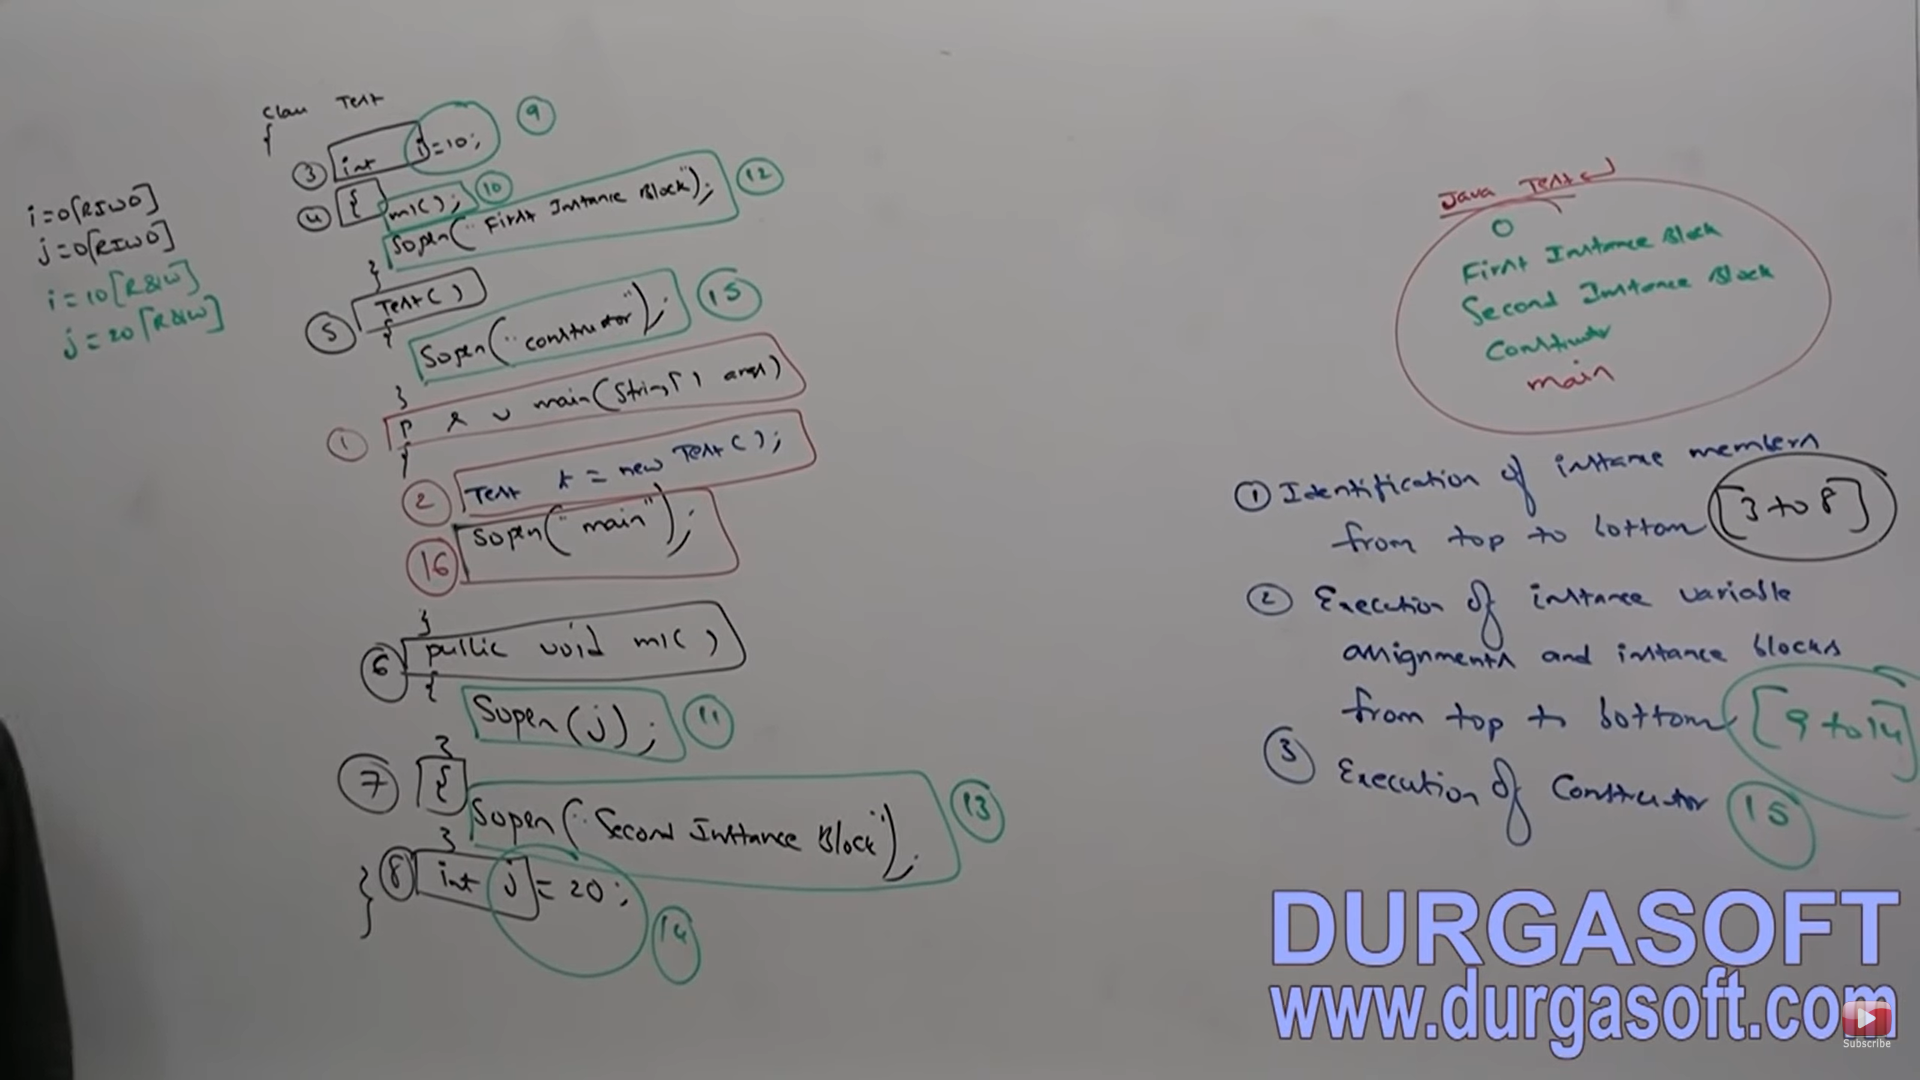 class Test
{
③ int i=10; ⑨
④ { m1(); ⑩
Sopln("First Instance Block"); ⑫
}
⑤ Test()
{
Sopln("constructor"); ⑮
}
① P s v main(String[] args)
{
② Test t = new Test();
⑯ Sopln("main");
}
⑥ public void m1()
{
Sopln(j); ⑪
}
⑦ {
Sopln("Second Instance Block"); ⑬
}
⑧ int j = 20; ⑭
}
i=0[RIWO]
j=0[RIWO]
i=10[R&W]
j=20[R&W]
Java Test↵
0
First Instance Block
Second Instance Block
Constructor
main
① Identification of instance members
from top to bottom [3 to 8]
② Execution of instance variable
assignments and instance blocks
from top to bottom [9 to 14]
③ Execution of Constructor ⑮
DURGASOFT
www.durgasoft.com
Subscribe